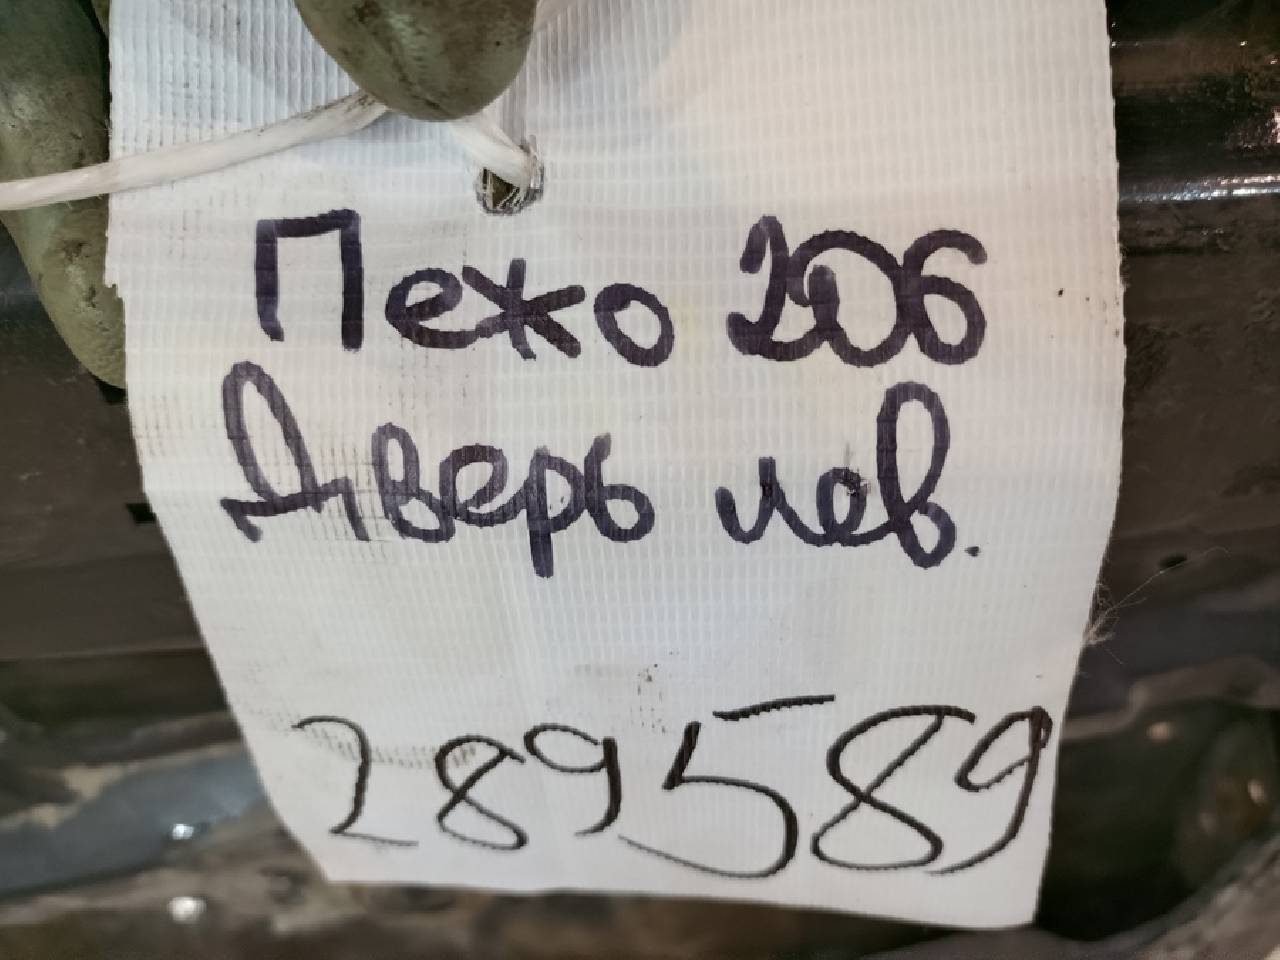 Пежо 206
Дверь лев.
289589